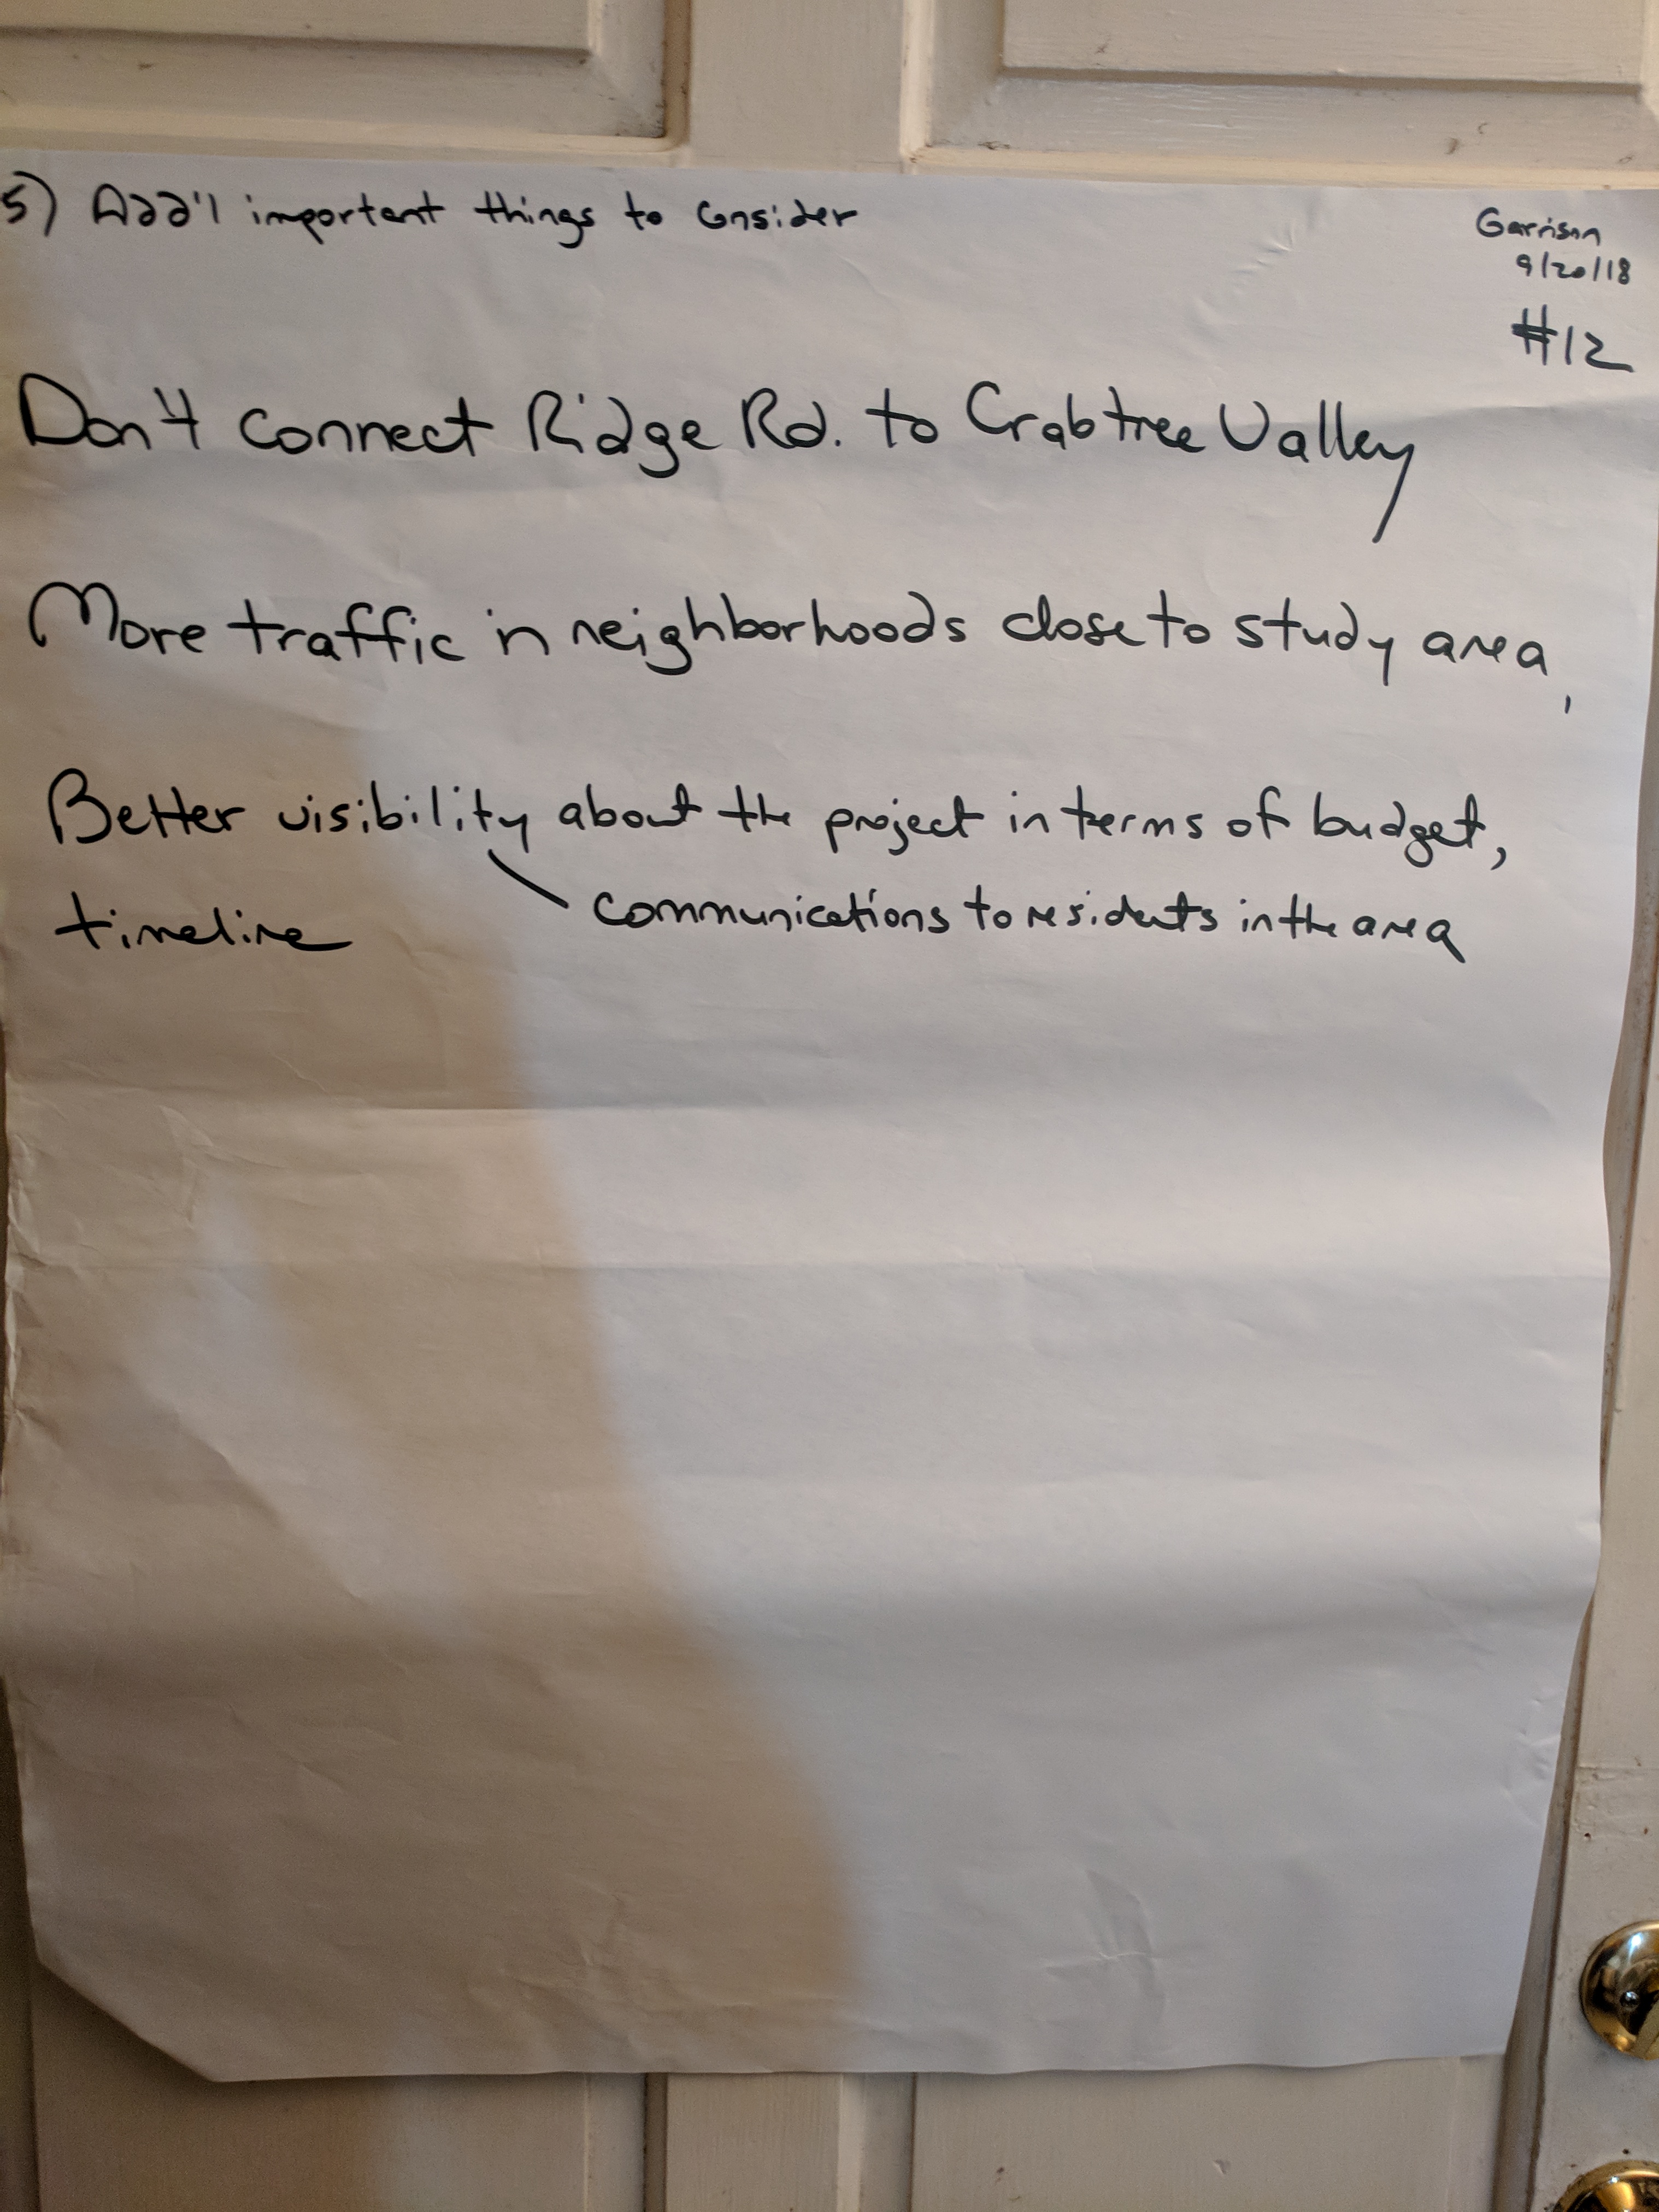 5) Add'l important things to consider
Garrison
9/20/18
#12
Don't connect Ridge Rd. to Crabtree Valley
More traffic in neighborhoods close to study area,
Better visibility about the project in terms of budget,
timeline
communications to residents in the area